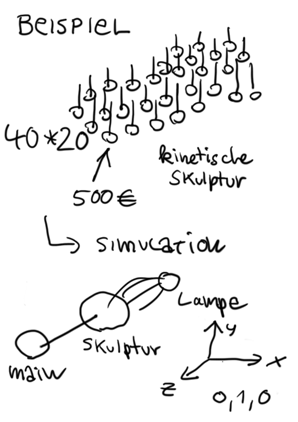 BEISPIEL
40*20
kinetische
SKULPTUR
500€
SIMULATION
Lampe
SKULPTUR
main
y
x
z
0,1,0